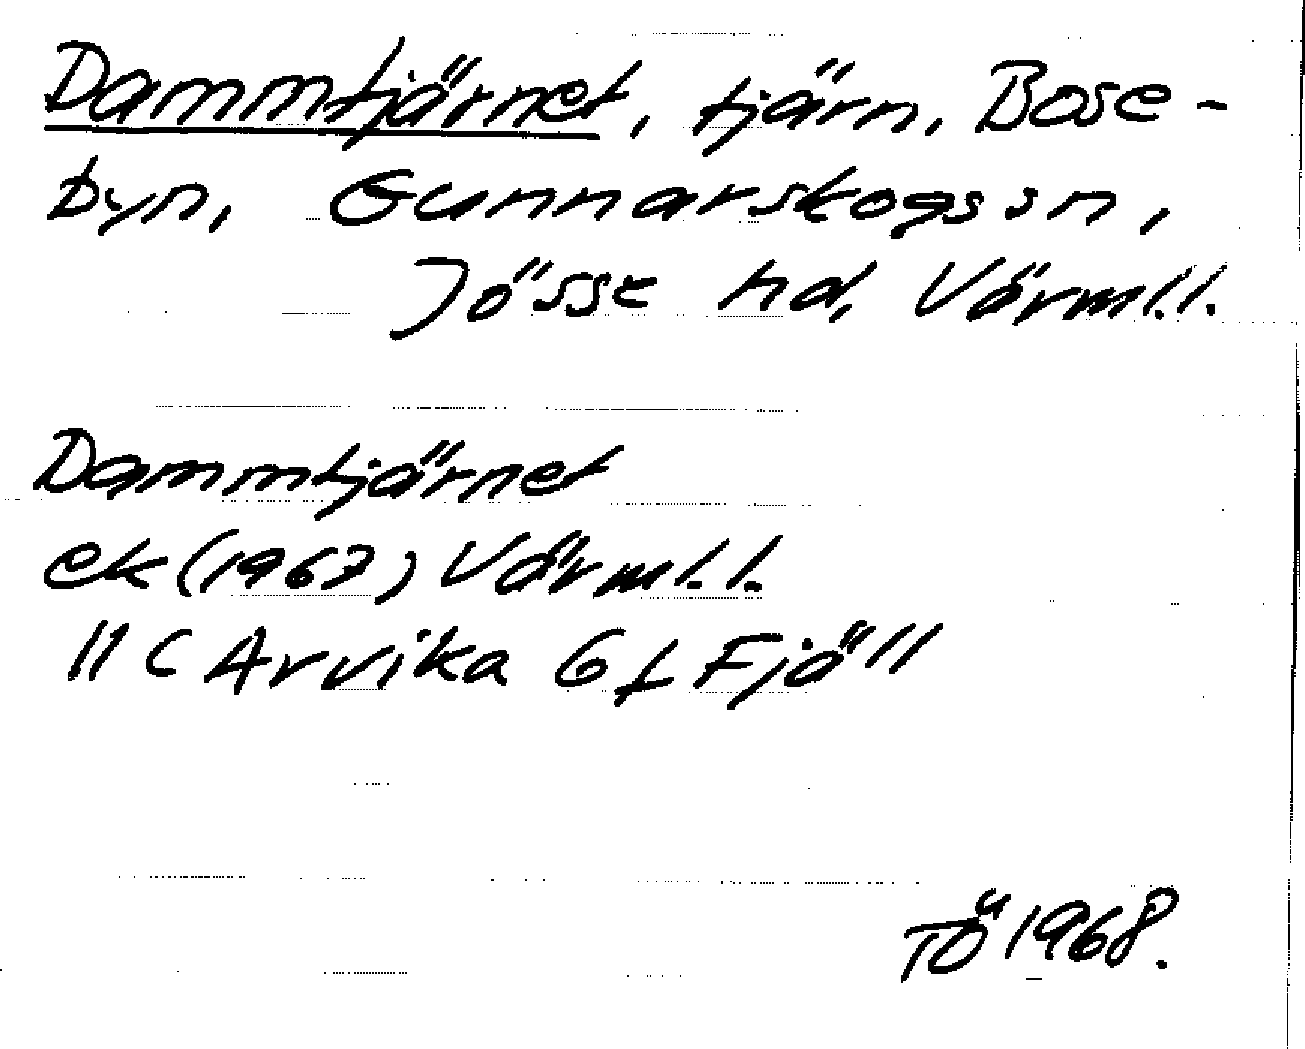 Dammtjärnet, tjärn, Bose-
byn, Gunnarskogs sn,
Jösse hd, Värml.l.
Dammtjärnet
ek (1967) Värml.l.
11 C Arvika 6 f Fjäll
TÖ 1968.